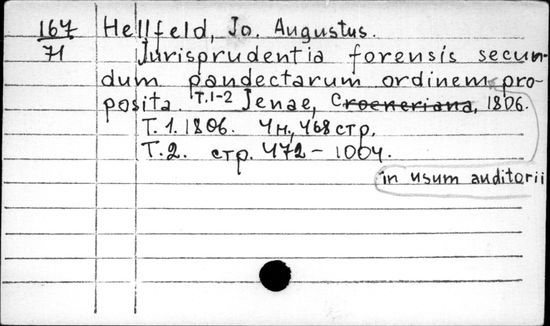 167 Hellfeld, Jo. Augustus.
71 Jurisprudentia forensis secun-
dum pandectarum ordinem pro-
posita. T.1-2 Jenae, Croeneriana, 1806.
T. 1. 1806. 4н., 468 стр.
T. 2. стр. 472 - 1004.
in usum auditorii